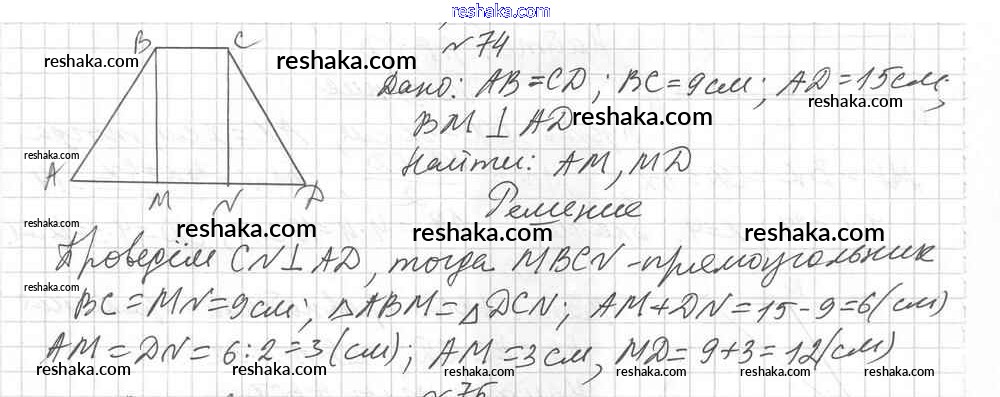 reshaka.com
№ 74
B C
reshaka.com reshaka.com
Дано: AB = CD; BC = 9 см; AD = 15 см;
reshaka.com
BM ⊥ AD reshaka.com
reshaka.com
Найти: AM, MD
A M N D
Решение
reshaka.com reshaka.com reshaka.com reshaka.com
Проведём CN ⊥ AD, тогда MBCN - прямоугольник
BC = MN = 9 см; △ABM = △DCN; AM + DN = 15 - 9 = 6 (см)
reshaka.com reshaka.com reshaka.com reshaka.com
AM = DN = 6 : 2 = 3 (см); AM = 3 см, MD = 9 + 3 = 12 (см)
reshaka.com reshaka.com reshaka.com reshaka.com
№ 75